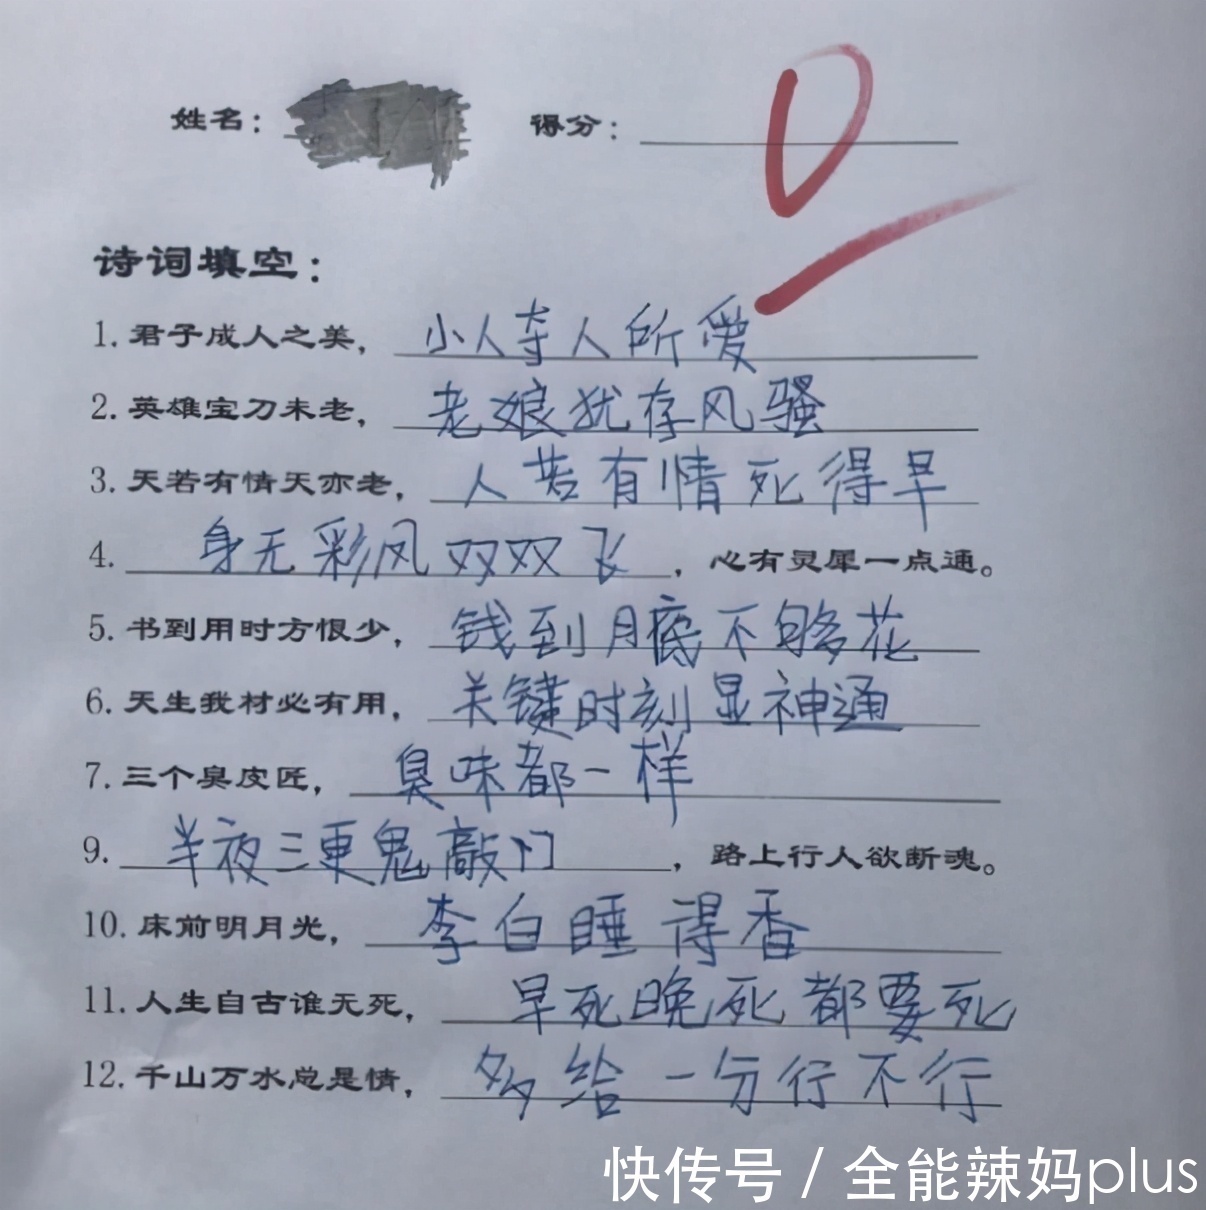 姓名： 得分： 0
诗词填空：
1. 君子成人之美，小人夺人所爱
2. 英雄宝刀未老，老娘犹存风骚
3. 天若有情天亦老，人若有情死得早
4. 身无彩凤双双飞，心有灵犀一点通。
5. 书到用时方恨少，钱到月底不够花
6. 天生我材必有用，关键时刻显神通
7. 三个臭皮匠，臭味都一样
9. 半夜三更鬼敲门，路上行人欲断魂。
10. 床前明月光，李白睡得香
11. 人生自古谁无死，早死晚死都要死
12. 千山万水总是情，多给一分行不行
快传号 / 全能辣妈plus